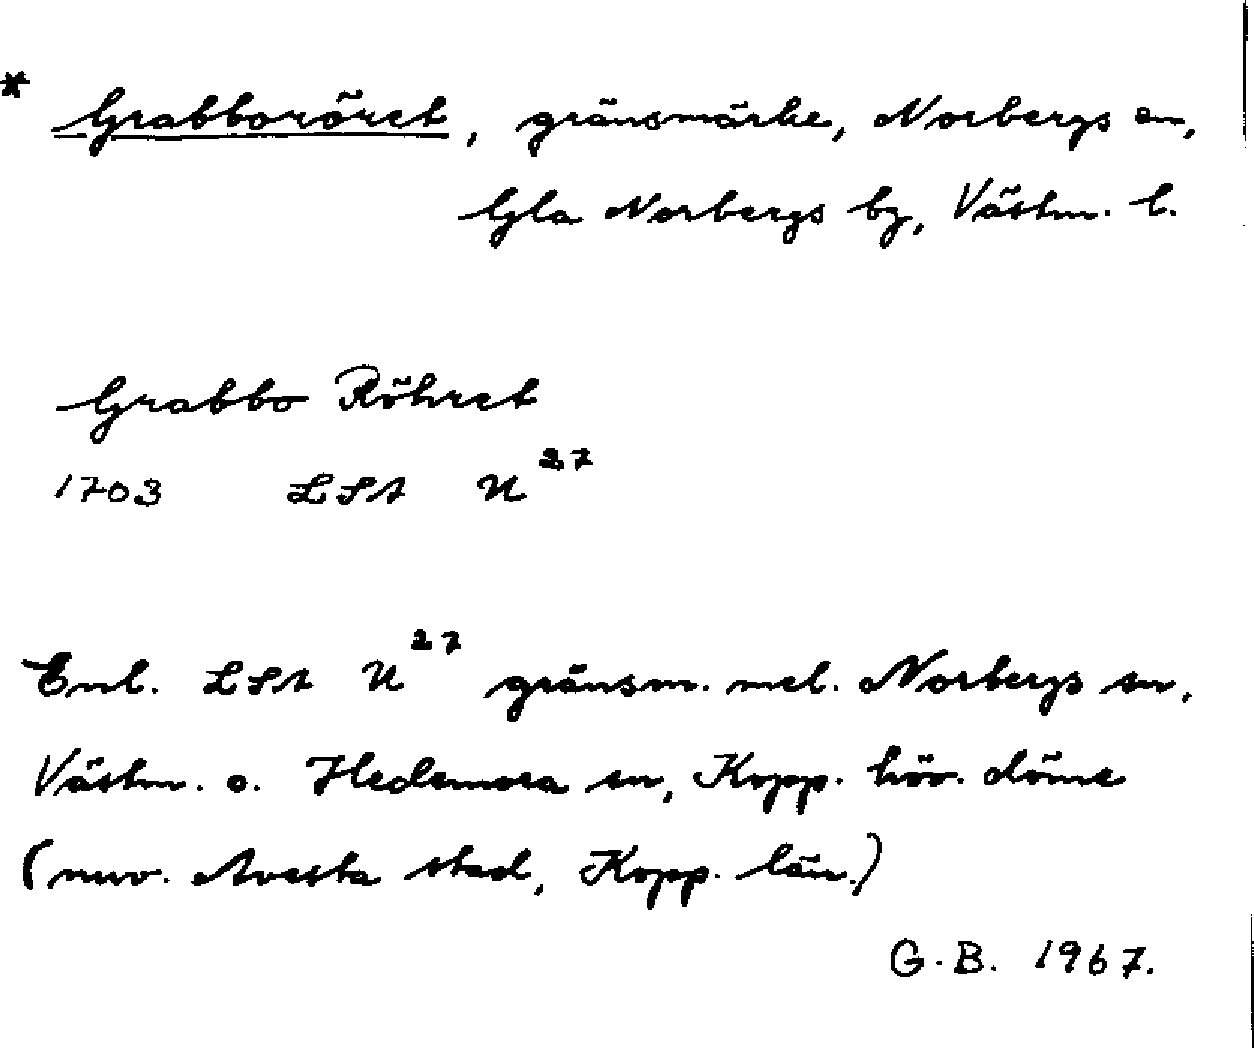 * Grabboröret, gränsmärke, Norbergs sn,
Gla Norbergs by, Västm. l.
Grabbo Röhret
1703 LSA U 27
Enl. LSA U 27 gränsm. mel. Norbergs sn,
Västm. o. Hedemora sn, Kopp. höv. döme
(nuv. Avesta stad, Kopp. län.)
G.B. 1967.